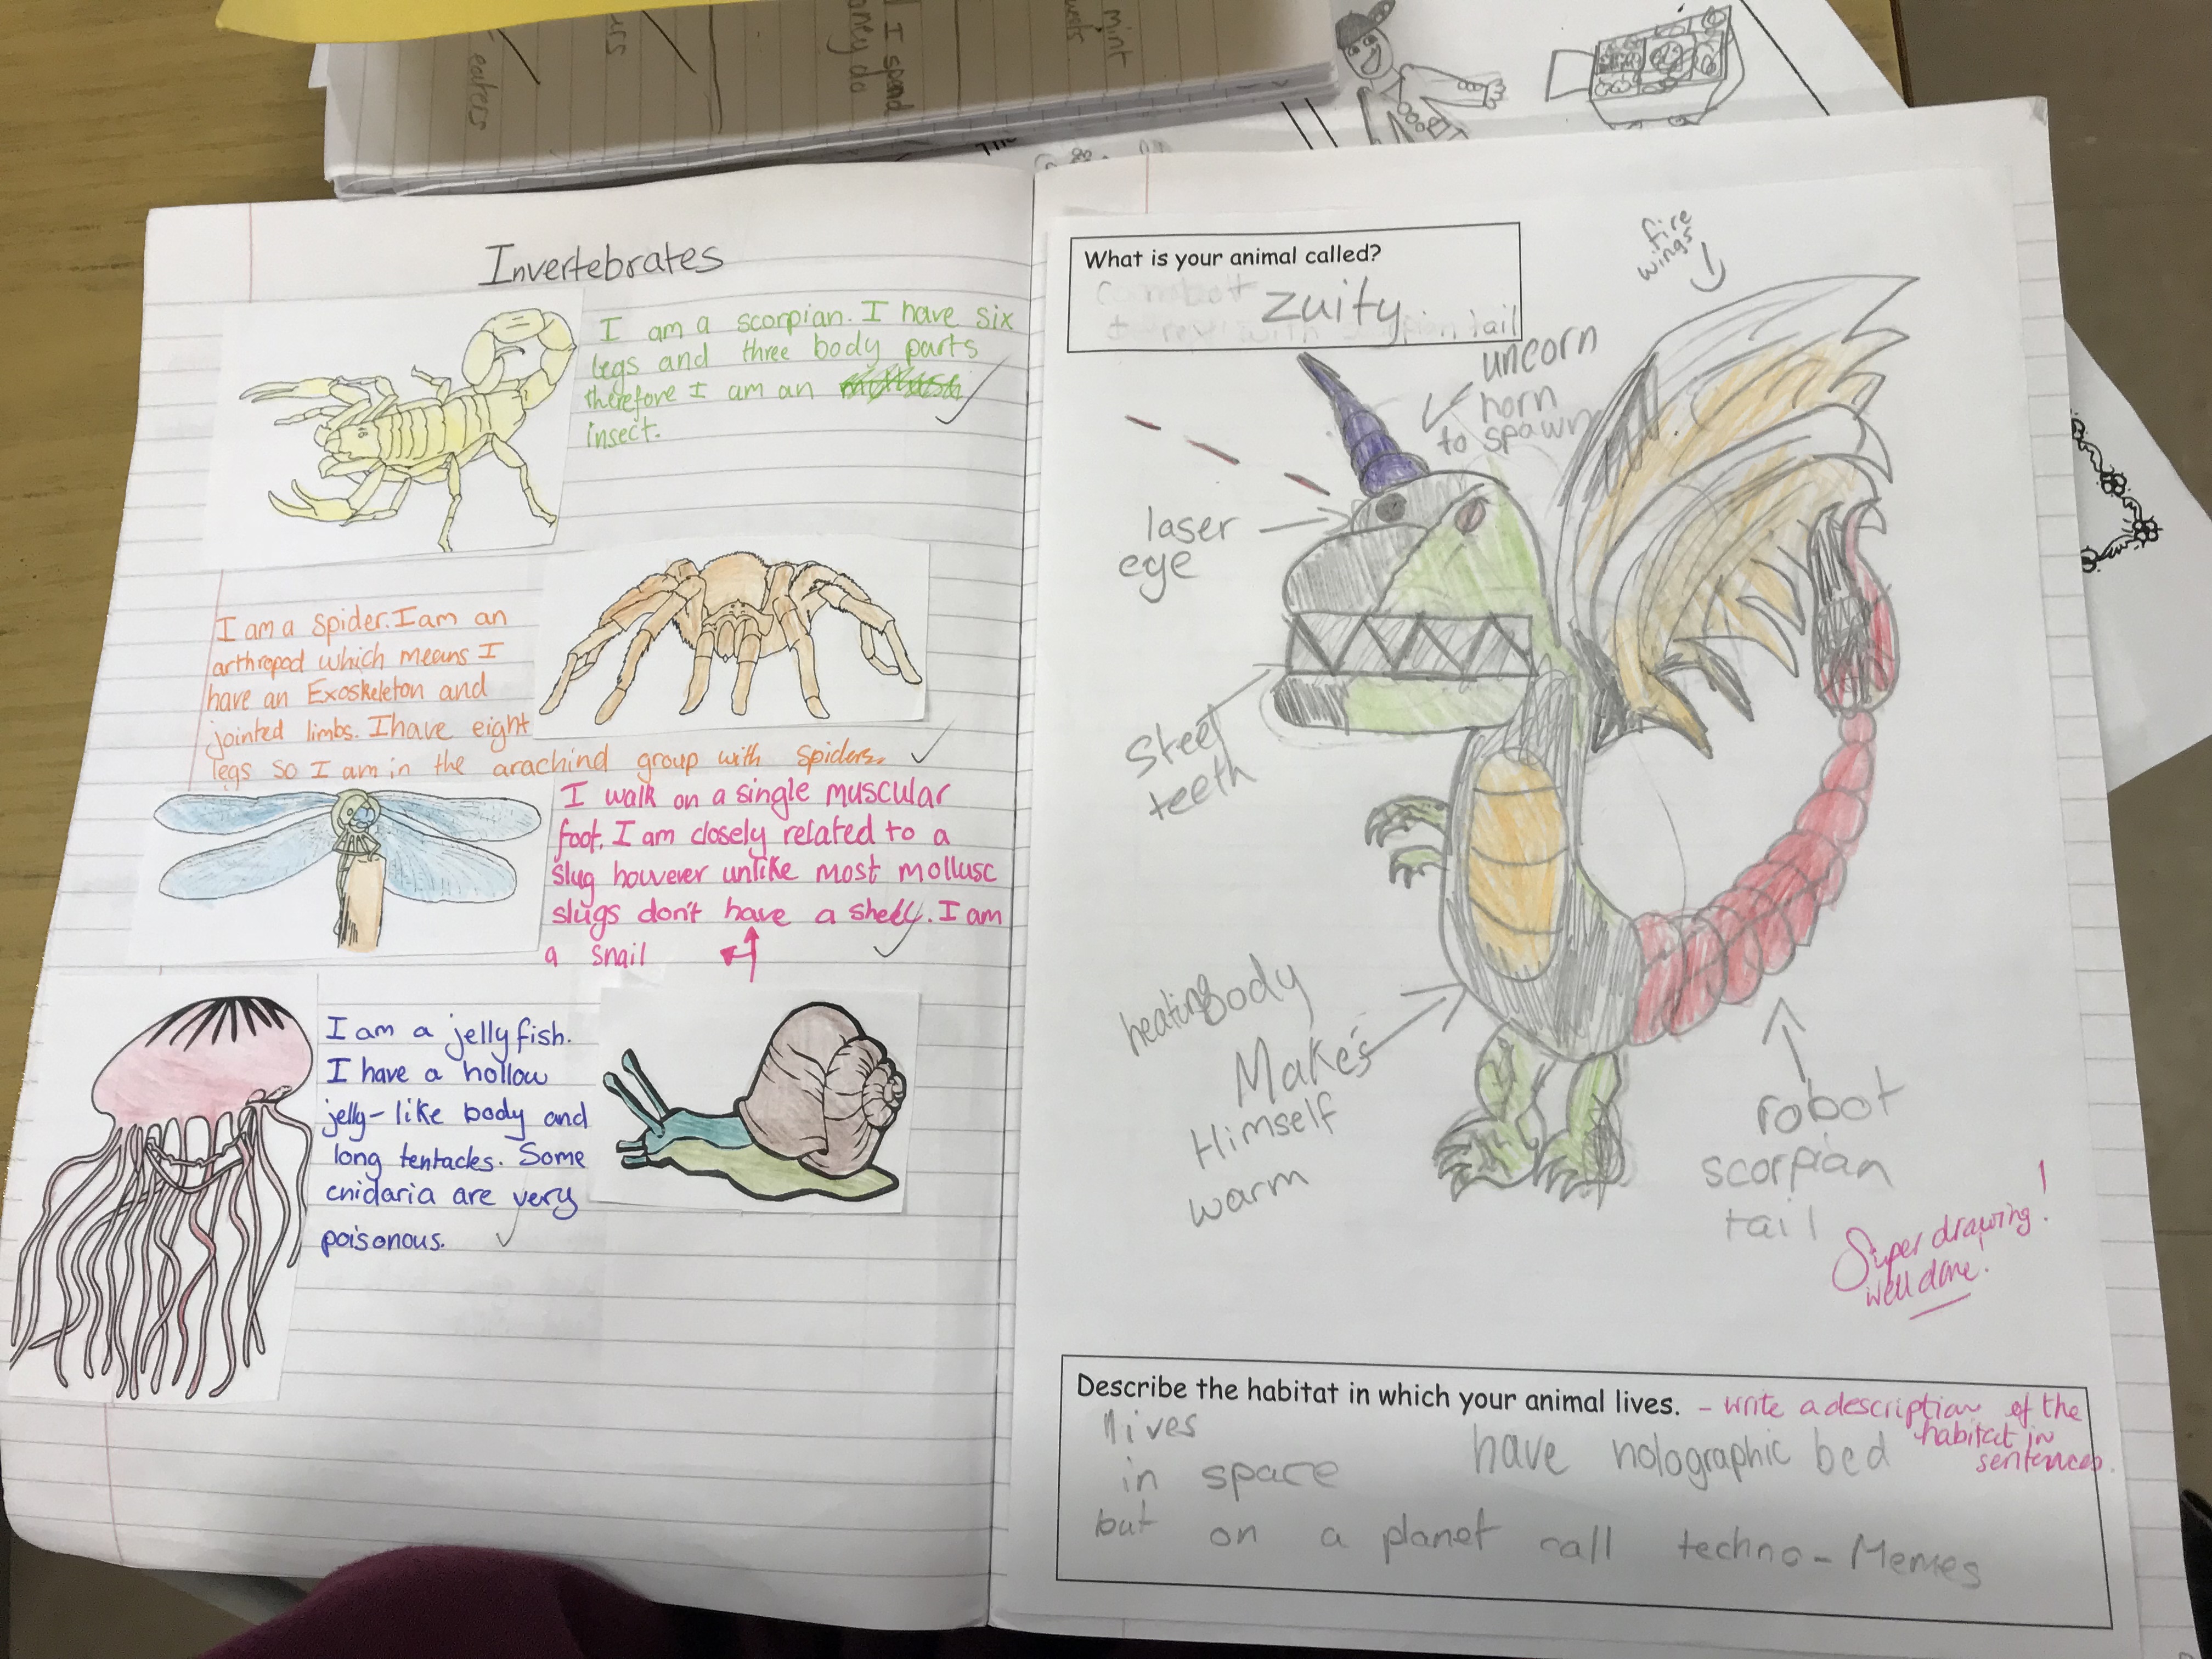 eaters
urs
I spend
aney do
mint
Invertebrates
I am a scorpian. I have six
legs and three body parts
therefore I am an
insect.
I am a spider. I am an
arthropod which means I
have an Exoskeleton and
jointed limbs. I have eight
legs so I am in the arachind group with spiders.
I walk on a single muscular
foot. I am closely related to a
slug however unlike most mollusc
slugs don't have a shell. I am
a snail
I am a jelly fish.
I have a hollow
jelly-like body and
long tentacles. Some
cnidaria are very
poisonous.
What is your animal called?
zuity
fire
wings
uncorn
horn
to spawn
laser
eye
Steel
teeth
heating body
Makes
Himself
warm
robot
scorpian
tail
Super drawing!
well done!
Describe the habitat in which your animal lives. - write a description of the
habitat in
sentences.
lives
in space have holographic bed
but on a planet call techno-Memes